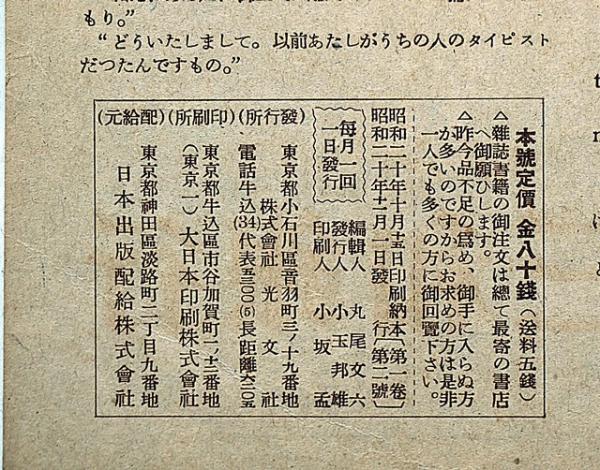 もり。”
“どういたしまして。以前あたしがうちの人のタイピスト
だつたんですもの。”
本號定價 金八十錢(送料五錢)
△雜誌書籍の御注文は總て最寄の書店
へ御願ひします。
△昨今品不足の爲め、御手に入らぬ方
が多いのですからお求めの方は是非
一人でも多くの方に御回覽下さい。
昭和二十年十月十五日印刷納本〔第一卷〕
昭和二十年十一月一日發行〔第二號〕
每月一回
一日發行
編輯人 丸尾文六
發行人 小玉邦雄
印刷人 小坂孟
(發行所)
東京都小石川區音羽町三ノ十九番地
株式會社 光文社
電話牛込(34)代表
長距離
(印刷所)
東京都牛込區市谷加賀町一ノ十二番地
(東京一)大日本印刷株式會社
(配給元)
東京都神田區淡路町二丁目九番地
日本出版配給株式會社